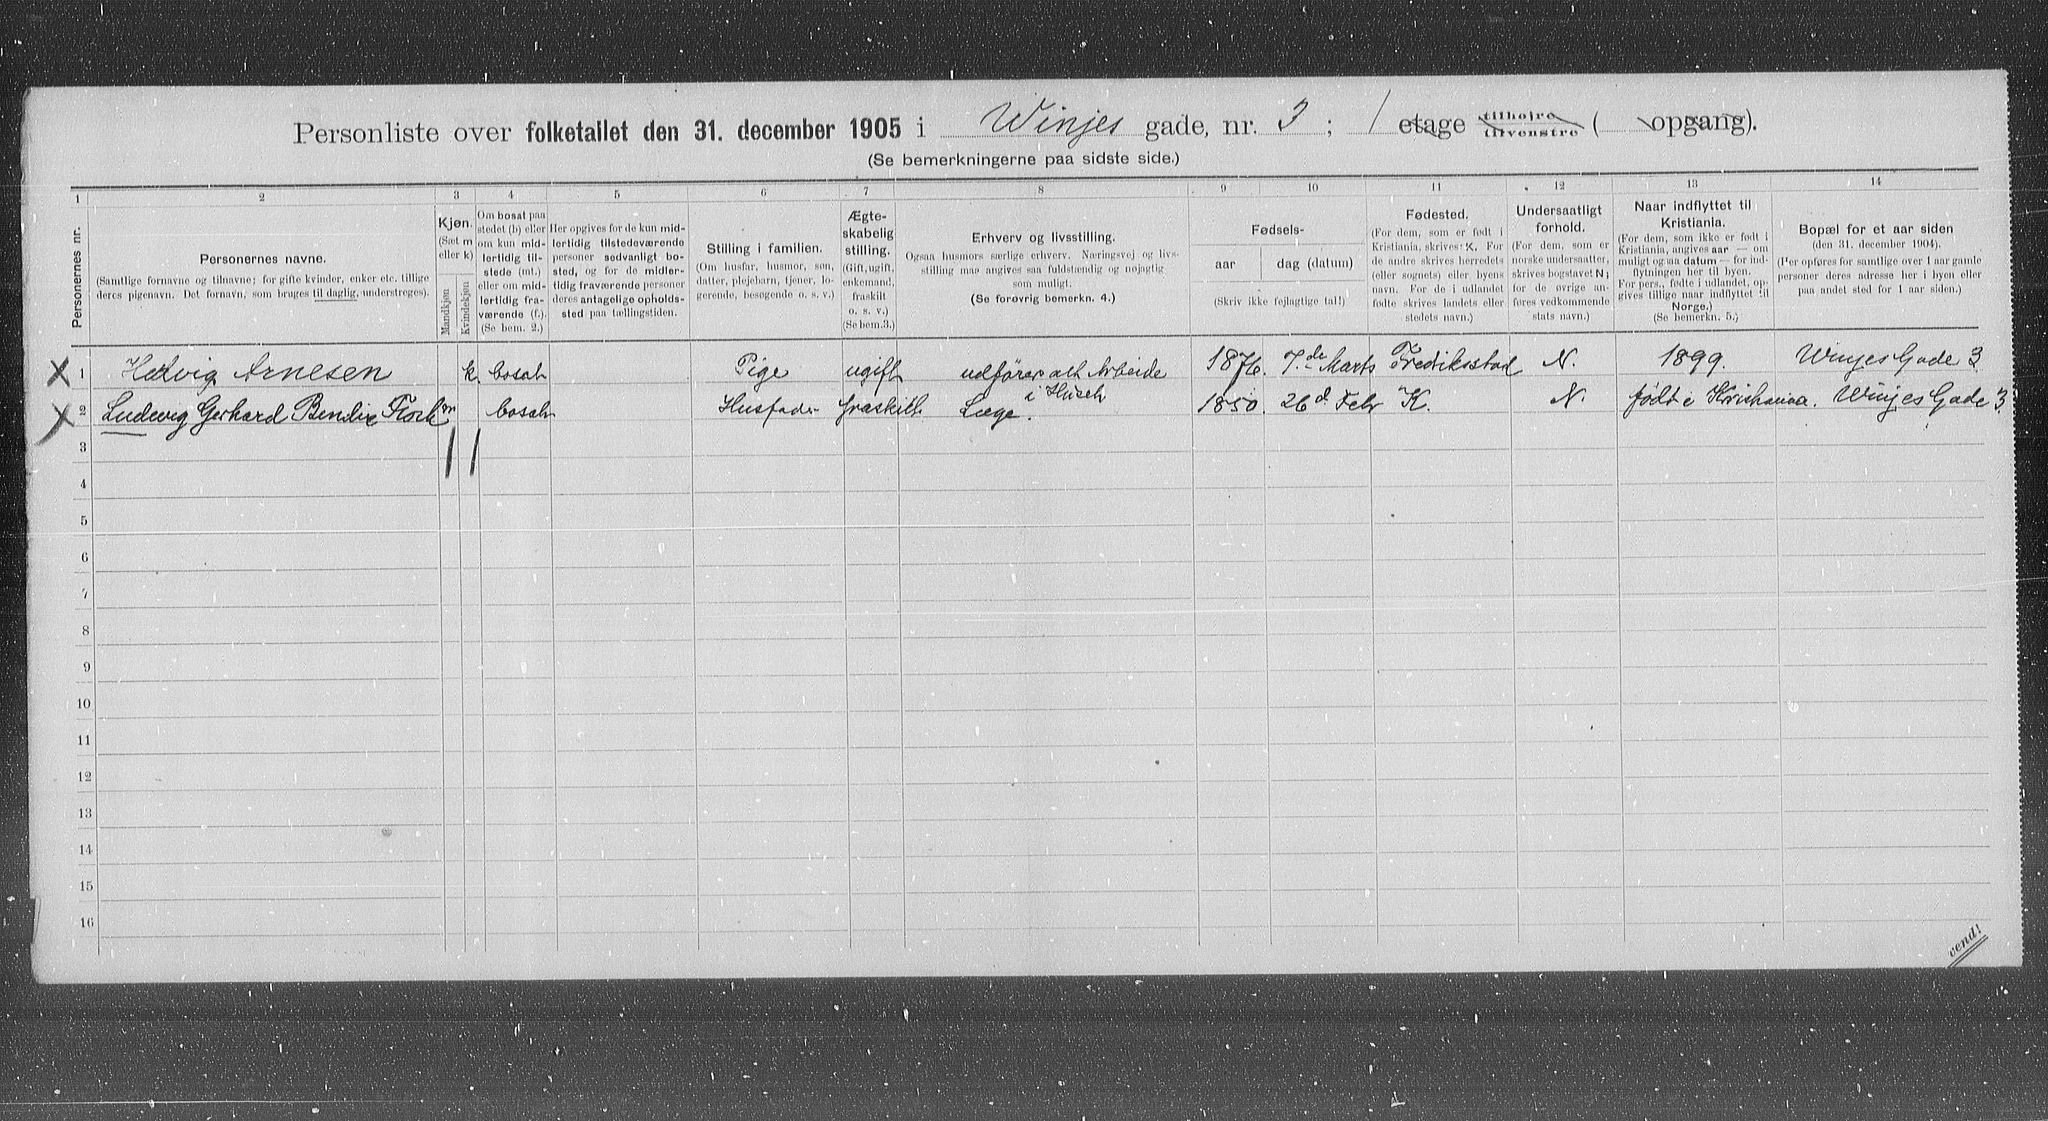 Personliste over folketallet den 31. december 1905 i Winjes gade, nr. 3 ; 1 etage tilhøjre tilvenstre ( opgang).
(Se bemerkningerne paa sidste side.)
1 2 3 4 5 6 7 8 9 10 11 12 13 14
Personernes nr.
Personernes navne.
(Samtlige fornavne og tilnavne; for gifte kvinder, enker etc. tillige
deres pigenavn. Det fornavn, som bruges til daglig, understreges).
Kjøn.
(Sæt m
eller k)
Mandkjøn
Kvindekjøn
Om bosat paa
stedet (b) eller
om kun mid-
lertidig til-
stede (mt.)
eller om mid-
lertidig fra-
værende (f.).
(Se bem. 2.)
Her opgives for de kun mid-
lertidig tilstedeværende
personer sedvanligt bo-
sted, og for de midler-
tidig fraværende personer
deres antagelige opholds-
sted paa tællingstiden.
Stilling i familien.
(Om husfar, husmor, søn,
datter, plejebarn, tjener, lo-
gerende, besøgende o. s. v.)
Ægte-
skabelig
stilling.
(Gift, ugift,
enkemand,
fraskilt
o. s. v.)
(Se bem.3.)
Erhverv og livsstilling.
Ogsaa husmors særlige erhverv. Næringsvej og livs-
stilling maa angives saa fuldstændig og nøjagtig
som muligt.
(Se forøvrig bemerkn. 4.)
Fødsels-
aar
dag (datum)
(Skriv ikke fejlagtige tal!)
Fødested.
(For dem, som er født i
Kristiania, skrives K. For
de andre skrives herredets
(eller sognets) eller byens
navn. For de i udlandet
fødte skrives landets eller
stedets navn.)
Undersaatligt
forhold.
(For dem, som er
norske undersaatter,
skrives bogstavet N;
for de øvrige an-
føres vedkommende
stats navn.)
Naar indflyttet til
Kristiania.
(For dem, som ikke er født i
Kristiania, angives aar — om
muligt og saa datum — for ind-
flytningen her til byen.
For pers., fødte i udlandet, op-
gives tillige naar indflyttet til
Norge.)
(Se bemerkn. 5.)
Bopæl for et aar siden
(den 31. december 1904).
(Per opføres for samtlige over 1 aar gamle
personer deres adresse her i byen eller
paa andet sted for 1 aar siden.)
X 1 Hedvig Arnesen k. bosat Pige ugift udförer alt Arbeide i Huset 1876. 7.de Marts Fredriksstad N. 1899. Winjes Gade 3
X 2 Ludvig Gerhard Bendix m bosat Husfader fraskilt Læge. 1850. 26d. Febr K. N. født i Kristiania. Winjes Gade 3.
3
4
5
6
7
8
9
10
11
12
13
14
15
16
vend!